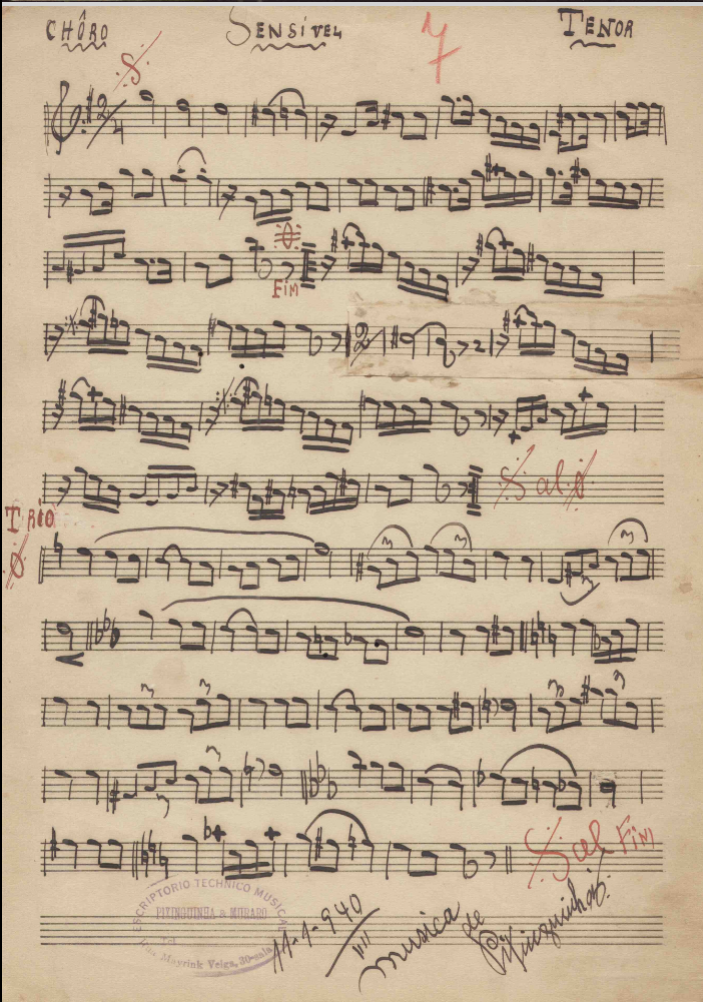 CHÔRO SENSÍVEL 7 TENOR
2/4
FIM
2
S al S
TRIO
3 3 3 3
3 3 3 3
3 3
S al FIM
ESCRIPTORIO TECHNICO MUSICAL
PIXINGUINHA & MURARO
Mayrink Veiga, 30-sala
11-1-940
musica de Pixinguinha